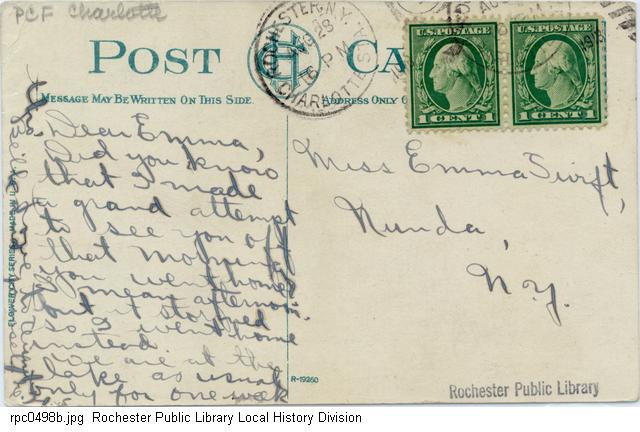 PCF Charlotte
POST CARD
MESSAGE MAY BE WRITTEN ON THIS SIDE.
ADDRESS ONLY
ROCHESTER, N.Y.
28
6 PM
CHARLOTTE STA.
U.S. POSTAGE
1 CENT 1
U.S. POSTAGE
1 CENT 1
Dear Emma,
Did you know
that I made
a grand attempt
to see you off
that morning
you went home
I mean afternoon.
but it stormed
so I went home
instead.
We are at the
lake as usual
only for one week
Miss Emma Swift,
Nunda,
N.Y.
FLOWER CITY SERIES — MADE IN U.S.A.
R-19260
Rochester Public Library
rpc0498b.jpg Rochester Public Library Local History Division